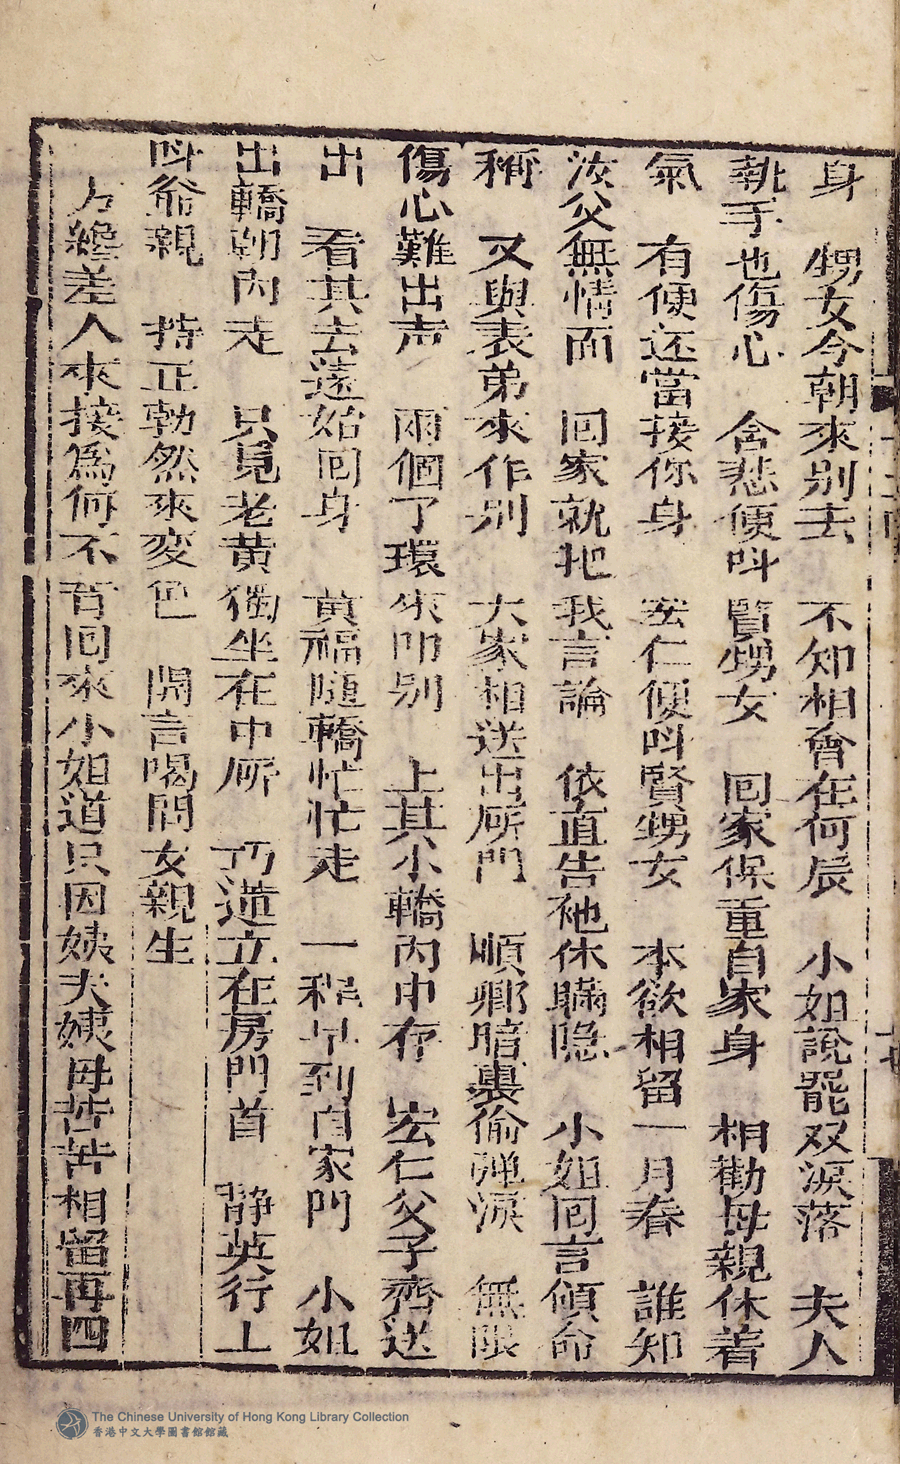 身　甥女今朝來别去　不知相會在何辰　小姐說罷双淚落　夫人
執手也傷心　含悲便呌賢甥女　回家保重自家身　相勸母親休着
氣　有便还當接你身　宏仁便呌賢甥女　本欲相留一月春　誰知
汝父無情面　回家就把我言論　依直告他休瞞隐　小姐回言傾命
稱　又與表弟來作别　大家相送出㕔門　順卿暗裏偷弹淚　無限
傷心難出声　兩個了環來叩别　上其小轎內中存　宏仁父子齊送
出　看其去遠始回身　黃福隨轎忙忙走　一程早到自家門　小姐
出轎朝內走　只見老黃獨坐在中㕔　巧蓮立在房門首　静英行上
呌爺親　持正勃然來变色　開言喝問女親生
方纔差人來接爲何不肯回來小姐道只因姨夫姨母苦苦相留再四
The Chinese University of Hong Kong Library Collection
香港中文大學圖書館館藏